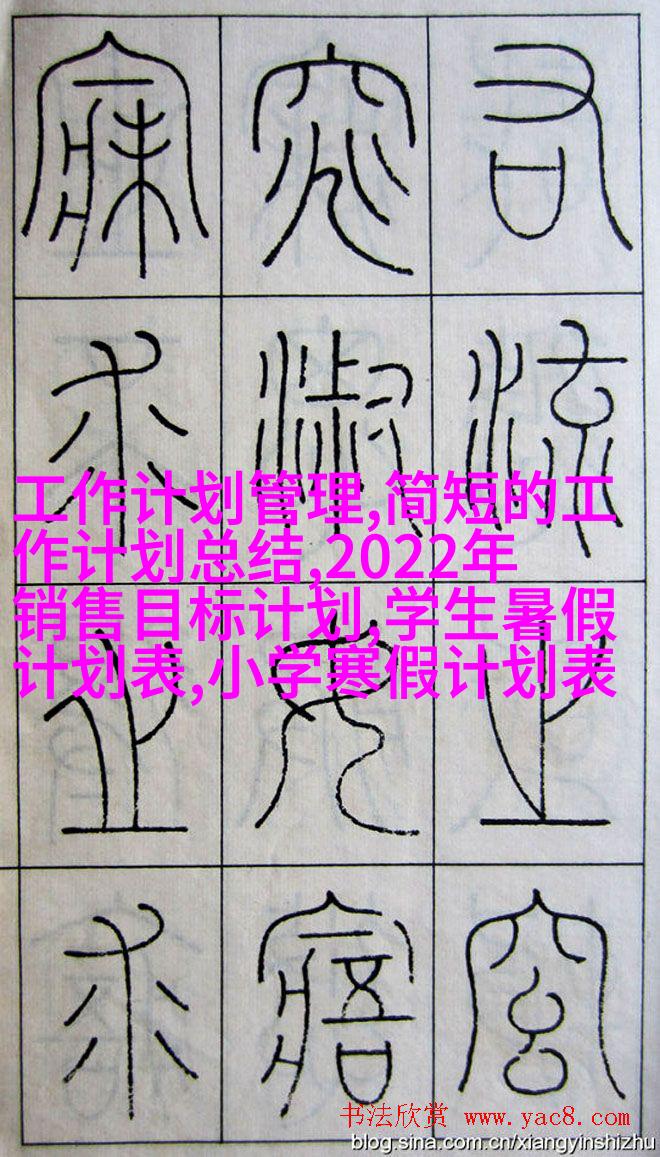 右流之窈
窕淑女寤
寐求之求
工作计划管理,简短的工
作计划总结,2022年
销售目标计划,学生暑假
计划表,小学寒假计划表
书法欣赏 www.yac8.com
blog.sina.com.cn/xiangyinshizhu